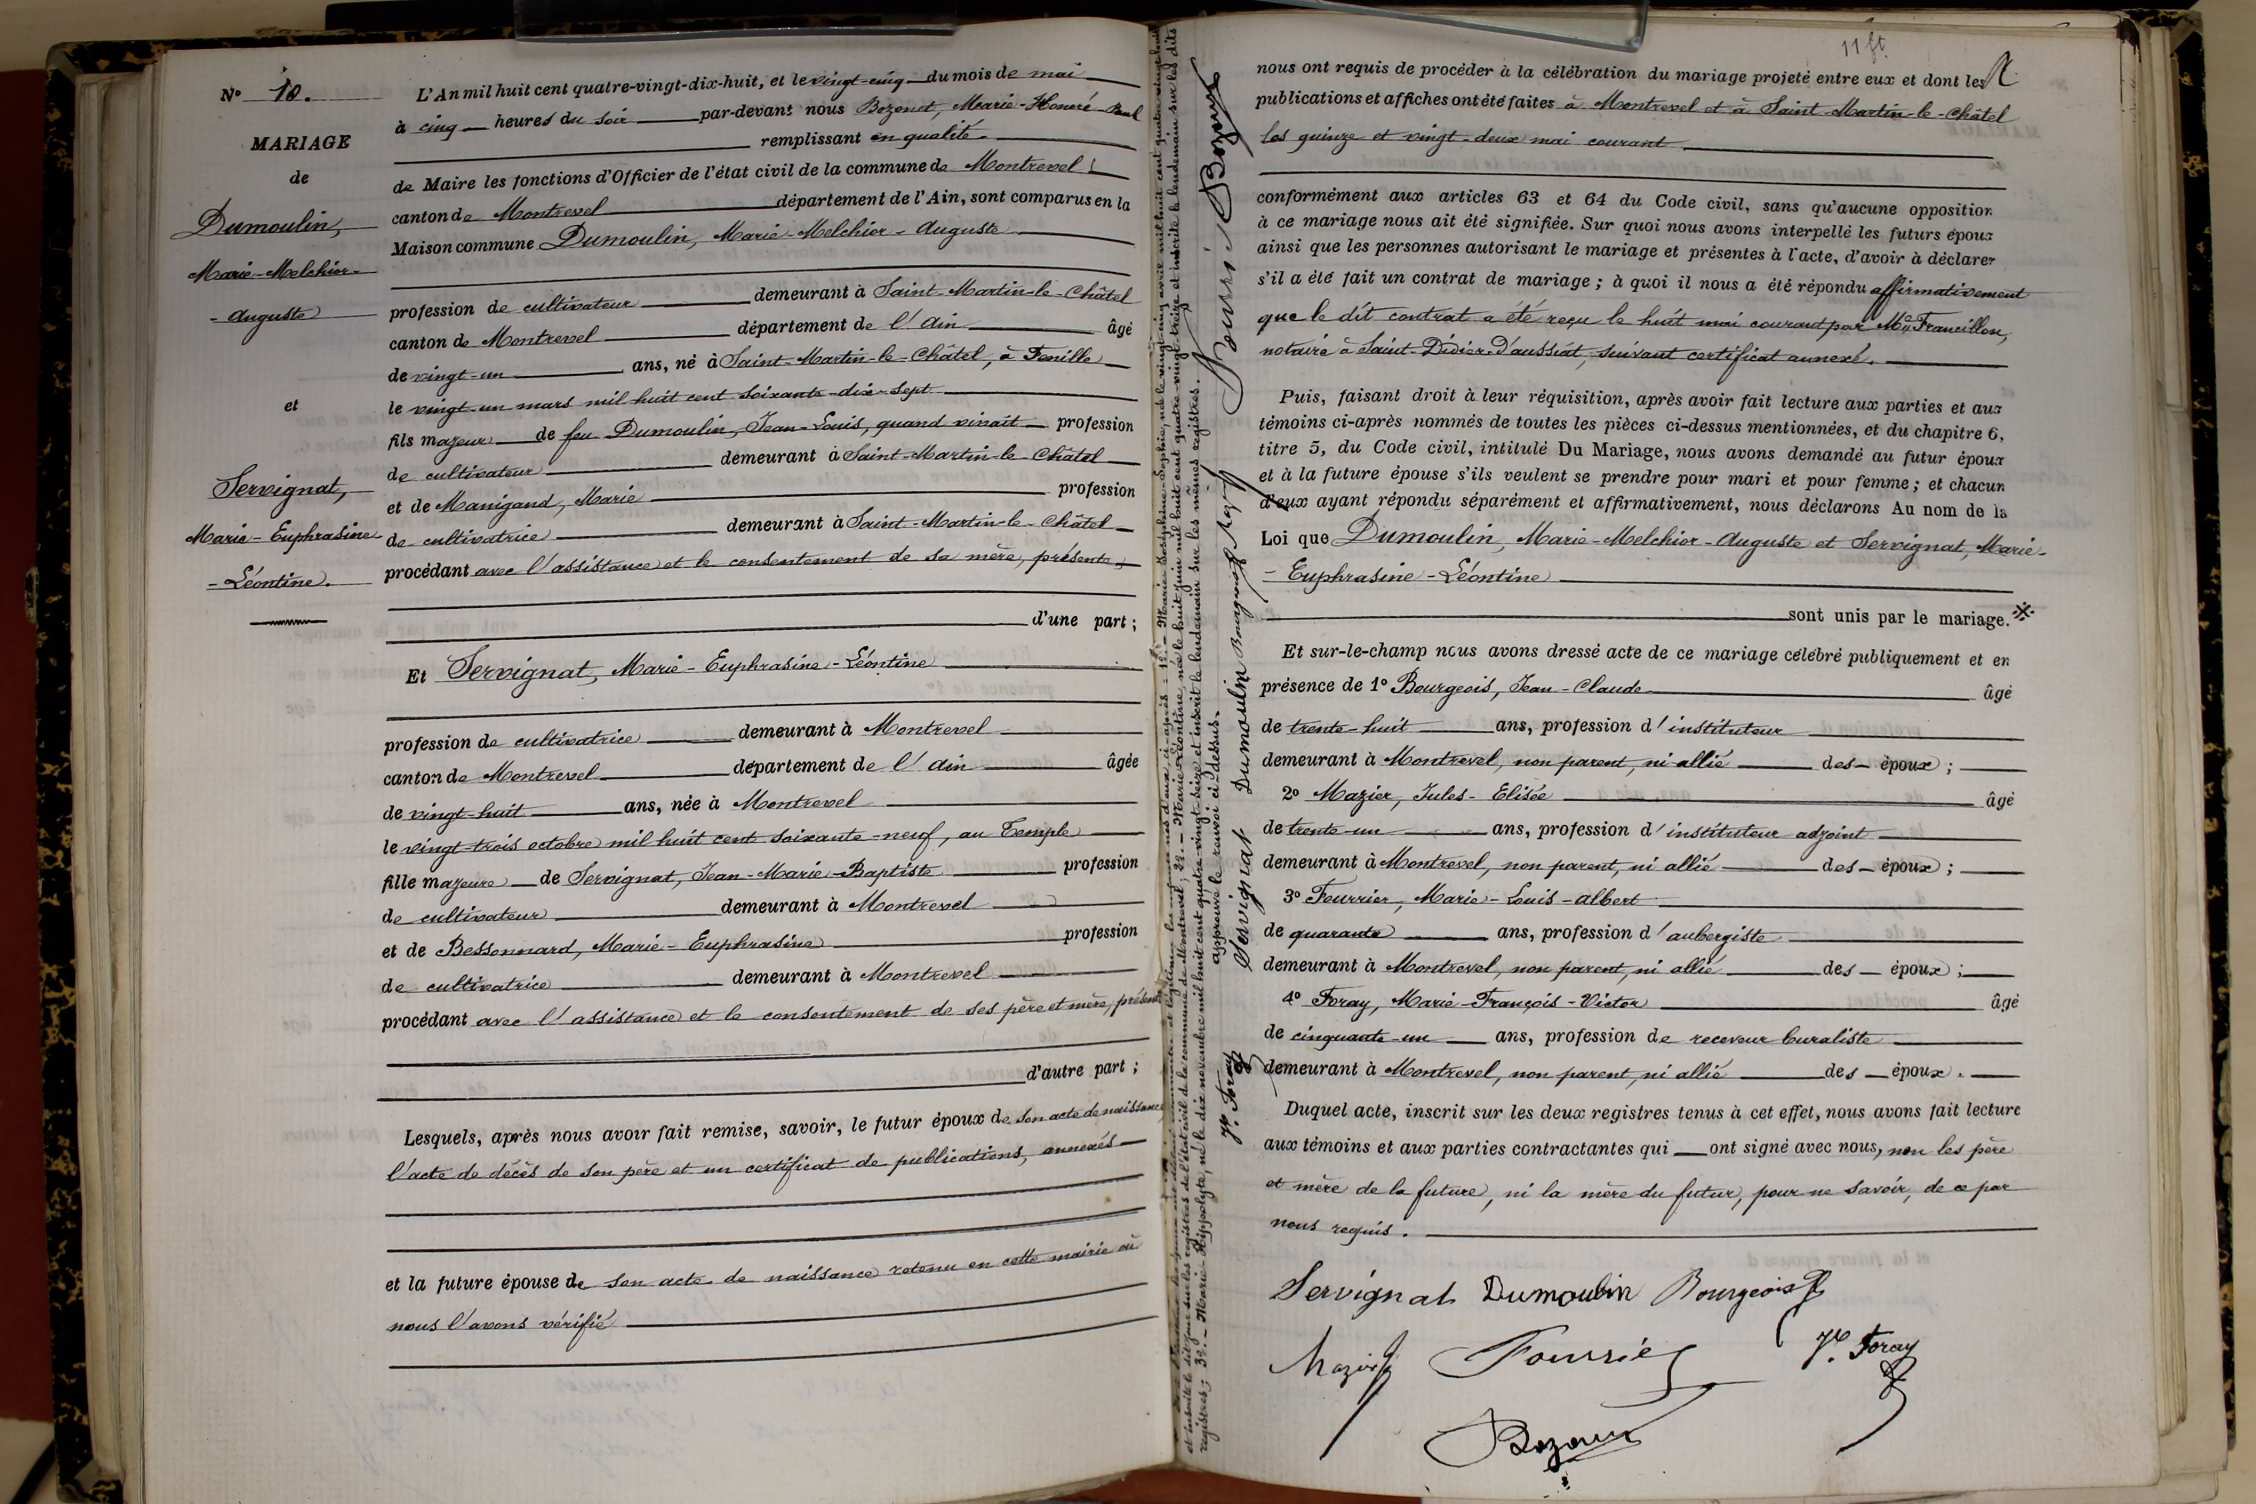 N° 10.
MARIAGE
de
Dumoulin,
Marie-Melchior-
-Auguste
et
Servignat,
Marie-Euphrasine
-Léontine.
L'An mil huit cent quatre-vingt-dix-huit, et le vingt-cinq du mois de mai
à cinq heures du soir par-devant nous Bozonet, Marie-Honoré-Paul
remplissant en qualité
de Maire les fonctions d'Officier de l'état civil de la commune de Montrevel
canton de Montrevel département de l'Ain, sont comparus en la
Maison commune Dumoulin, Marie-Melchior-Auguste
profession de cultivateur demeurant à Saint-Martin-le-Châtel
canton de Montrevel département de l'Ain âgé
de vingt-un ans, né à Saint-Martin-le-Châtel, à Fenille
le vingt-un mars mil huit cent soixante-dix-sept
fils majeur de feu Dumoulin, Jean-Louis, quand vivait profession
de cultivateur demeurant à Saint-Martin-le-Châtel
et de Manigand, Marie profession
de cultivatrice demeurant à Saint-Martin-le-Châtel
procédant avec l'assistance et le consentement de sa mère, présente,
d'une part ;
Et Servignat, Marie-Euphrasine-Léontine
profession de cultivatrice demeurant à Montrevel
canton de Montrevel département de l'Ain âgée
de vingt-huit ans, née à Montrevel
le vingt-trois octobre mil huit cent soixante-neuf, au Temple
fille majeure de Servignat, Jean-Marie-Baptiste profession
de cultivateur demeurant à Montrevel
et de Bessonnard, Marie-Euphrasine profession
de cultivatrice demeurant à Montrevel
procédant avec l'assistance et le consentement de ses père et mère, présents
d'autre part ;
Lesquels, après nous avoir fait remise, savoir, le futur époux de son acte de naissance
l'acte de décès de son père et un certificat de publications, annexés
et la future épouse de son acte de naissance retenu en cette mairie où
nous l'avons vérifié
11 ft
nous ont requis de procéder à la célébration du mariage projeté entre eux et dont les
publications et affiches ont été faites à Montrevel et à Saint-Martin-le-Châtel
les quinze et vingt-deux mai courant
conformément aux articles 63 et 64 du Code civil, sans qu'aucune opposition
à ce mariage nous ait été signifiée. Sur quoi nous avons interpellé les futurs époux
ainsi que les personnes autorisant le mariage et présentes à l'acte, d'avoir à déclarer
s'il a été fait un contrat de mariage ; à quoi il nous a été répondu affirmativement
que le dit contrat a été reçu le huit mai courant par Me Francillon,
notaire à Saint-Didier-d'aussiat, suivant certificat annexé.
Puis, faisant droit à leur réquisition, après avoir fait lecture aux parties et aux
témoins ci-après nommés de toutes les pièces ci-dessus mentionnées, et du chapitre 6,
titre 5, du Code civil, intitulé Du Mariage, nous avons demandé au futur époux
et à la future épouse s'ils veulent se prendre pour mari et pour femme ; et chacun
d'eux ayant répondu séparément et affirmativement, nous déclarons Au nom de la
Loi que Dumoulin, Marie-Melchior-Auguste et Servignat, Marie-
-Euphrasine-Léontine
sont unis par le mariage. ※
Et sur-le-champ nous avons dressé acte de ce mariage célébré publiquement et en
présence de 1° Bourgeois, Jean-Claude âgé
de trente-huit ans, profession d'instituteur
demeurant à Montrevel, non parent, ni allié des époux ;
2° Mazier, Jules-Elisée âgé
de trente-un ans, profession d'instituteur adjoint
demeurant à Montrevel, non parent, ni allié des époux ;
3° Fourrier, Marie-Louis-Albert
de quarante ans, profession d'aubergiste
demeurant à Montrevel, non parent, ni allié des époux ;
4° Foray, Marie-François-Victor âgé
de cinquante-un ans, profession de receveur buraliste
demeurant à Montrevel, non parent, ni allié des époux.
Duquel acte, inscrit sur les deux registres tenus à cet effet, nous avons fait lecture
aux témoins et aux parties contractantes qui ont signé avec nous, non les père
et mère de la future, ni la mère du futur, pour ne savoir, de ce par
nous requis.
Servignat Dumoulin Bourgeois
Mazier Fourrier Foray
Bozonet
et inscrite le dit jour sur les registres de l'état civil de la commune de Montrevel ; 2°.- Marie-Léontine, née le huit juin mil huit cent quatre-vingt-treize et inscrite le lendemain sur les dits
registres ; 3°.- Marie-Hippolyte, né le dix novembre mil huit cent quatre-vingt-seize et inscrit le lendemain sur les mêmes registres.
approuvé le renvoi ci-dessus.
Foray Servignat Dumoulin Bourgeois Mazier Fourrier Bozonet